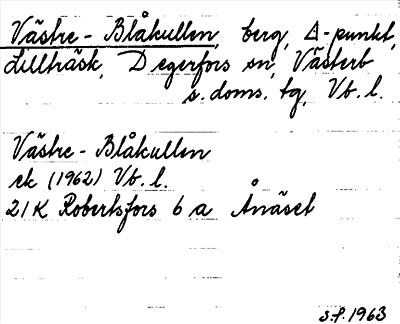 Västre-Blåkullen, berg, Δ-punkt,
Lillträsk, Degerfors sn, Västerb
s. doms. tg, Vb. l.
Västre-Blåkullen
ek (1962) Vb. l.
21K Robertsfors 6 a Ånäset
s.f. 1963